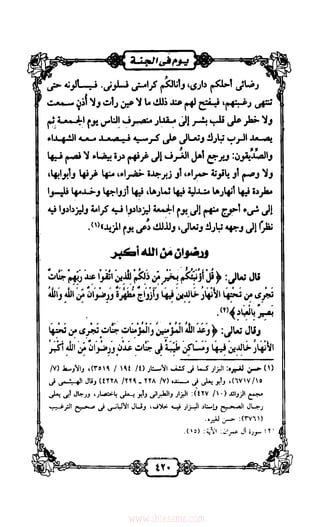 يوم فى الجنة
رضائى أحلكم دارى، وأنالكم كرامتى فسلونى. فيسألونه حتى
تنتهى رغبتهم، فيفتح لهم عند ذلك ما لا عين رأت ولا أذن سمعت
ولا خطر على قلب بشر إلى مقدار منصرف الناس يوم الجمعة ثم
يصعد الرب تبارك وتعالى على كرسيه فيصعد معه الشهداء
والصدِّيقون: ويرجع أهل الغُرف إلى غرفهم درة بيضاء لا فصم فيها
ولا وصم أو ياقوتة حمراء، أو زبرجدة خضراء، منها غرفها وأبوابها،
مطردة فيها أنهارها متدلية فيها ثمارها، فيها أزواجها وخدمها فليسوا
إلى شىء أحوج منهم إلى يوم الجمعة ليزدادوا فيه كرامة وليزدادوا فيه
نظرًا إلى وجهه تبارك وتعالى، ولذلك دُعى يوم المزيد»(١).
ورضوان من الله أكبر
قال تعالى: ﴿ قُلْ أَؤُنَبِّئُكُم بِخَيْرٍ مِّن ذَلِكُمْ لِلَّذِينَ اتَّقَوْا عِندَ رَبِّهِمْ جَنَّاتٌ
تَجْرِي مِن تَحْتِهَا الأَنْهَارُ خَالِدِينَ فِيهَا وَأَزْوَاجٌ مُّطَهَّرَةٌ وَرِضْوَانٌ مِّنَ اللَّهِ وَاللَّهُ
بَصِيرٌ بِالْعِبَادِ ﴾(٢).
وقال تعالى: ﴿ وَعَدَ اللَّهُ الْمُؤْمِنِينَ وَالْمُؤْمِنَاتِ جَنَّاتٍ تَجْرِي مِن تَحْتِهَا
الأَنْهَارُ خَالِدِينَ فِيهَا وَمَسَاكِنَ طَيِّبَةً فِي جَنَّاتِ عَدْنٍ وَرِضْوَانٌ مِّنَ اللَّهِ أَكْبَرُ
(١) حسن لغيره: البزار كما فى كشف الأستار (٤/ ١٩٤ / ٣٥١٩)، والأوسط (٧/
١٥/ ٦٧١٧)، وأبو يعلى فى مسنده (٧/ ٢٢٨ ـ ٢٢٩/ ٤٢٢٨) وقال الهيثمى فى
مجمع الزوائد (١٠/ ٤٢٧): البزار والطبرانى وأبو يعلى باختصار، ورجال أبى يعلى
رجال الصحيح وإسناد البزار فيه خلاف، وقال الألبانى فى صحيح الترغيب
(٣٧٦١): حسن لغيره.
(٢) سورة آل عمران: الآية: (١٥).
٤٢٠